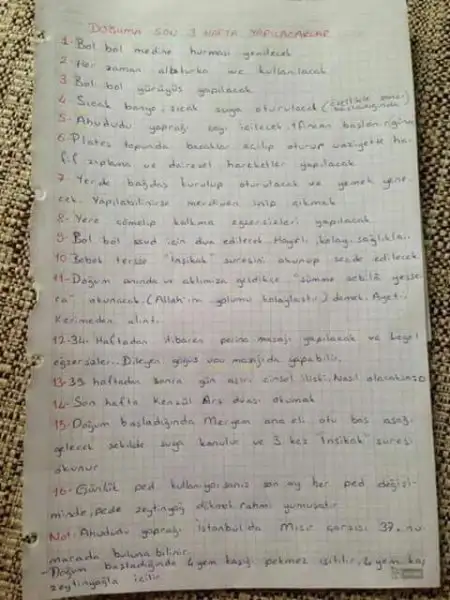 DOĞUMA SON 3 HAFTA YAPILACAKLAR
1- Bol bol medine hurması yenilecek
2- Her zaman alaturka wc kullanılacak
3- Bol bol yürüyüş yapılacak
4- Sıcak banyo, sıcak suya oturulacak (özellikle sancı başladığında)
5- Ahududu yaprağı çayı içilecek.
6- Plates topunda bacaklar açılıp oturup vaziyette ha-
fif zıplama ve dairesel hareketler yapılacak
7- Yerde bağdaş kurulup oturulacak ve yemek yene-
cek. Yapılabilirse merdiven inip çıkmak
8- Yere çömelip kalkma egzersizleri yapılacak
9- Bol bol için dua edilecek. Hayırlı, kolay, sağlıkla..
10- Bebek tersse "İnşikak" suresi okunup secde edilecek
11- Doğum anında ve aklımıza geldikçe "sümme sebile yesse-
ra" okunacak. (Allah'ım yolumu kolaylaştır) demek. Ayet-i
Kerimeden alıntı.
12- 34. Haftadan itibaren perine masajı yapılacak ve kegel
egzersizleri.. Dileyen göğüs ucu masajı da yapabilir.
13- 39 haftadan sonra gün aşırı cinsel ilişki. Nasıl olacaksa
14- Son hafta Kenzül Arş duası okumak
15- Doğum başladığında Meryem ana eli otu baş aşağı
gelecek şekilde suya konulur ve 3 kez "İnşikak" suresi
okunur
16- Günlük ped kullanıyorsanız son ay her ped değişi-
minde, pede zeytinyağ dökmek rahmi yumuşatır
Not: Ahududu yaprağı İstanbul'da Mısır çarşısı 37. nu-
marada bulunabilir.
- Doğum başladığında 4 yem kaşığı pekmez ısıtılır, 4 yem kaş
zeytinyağla içilir